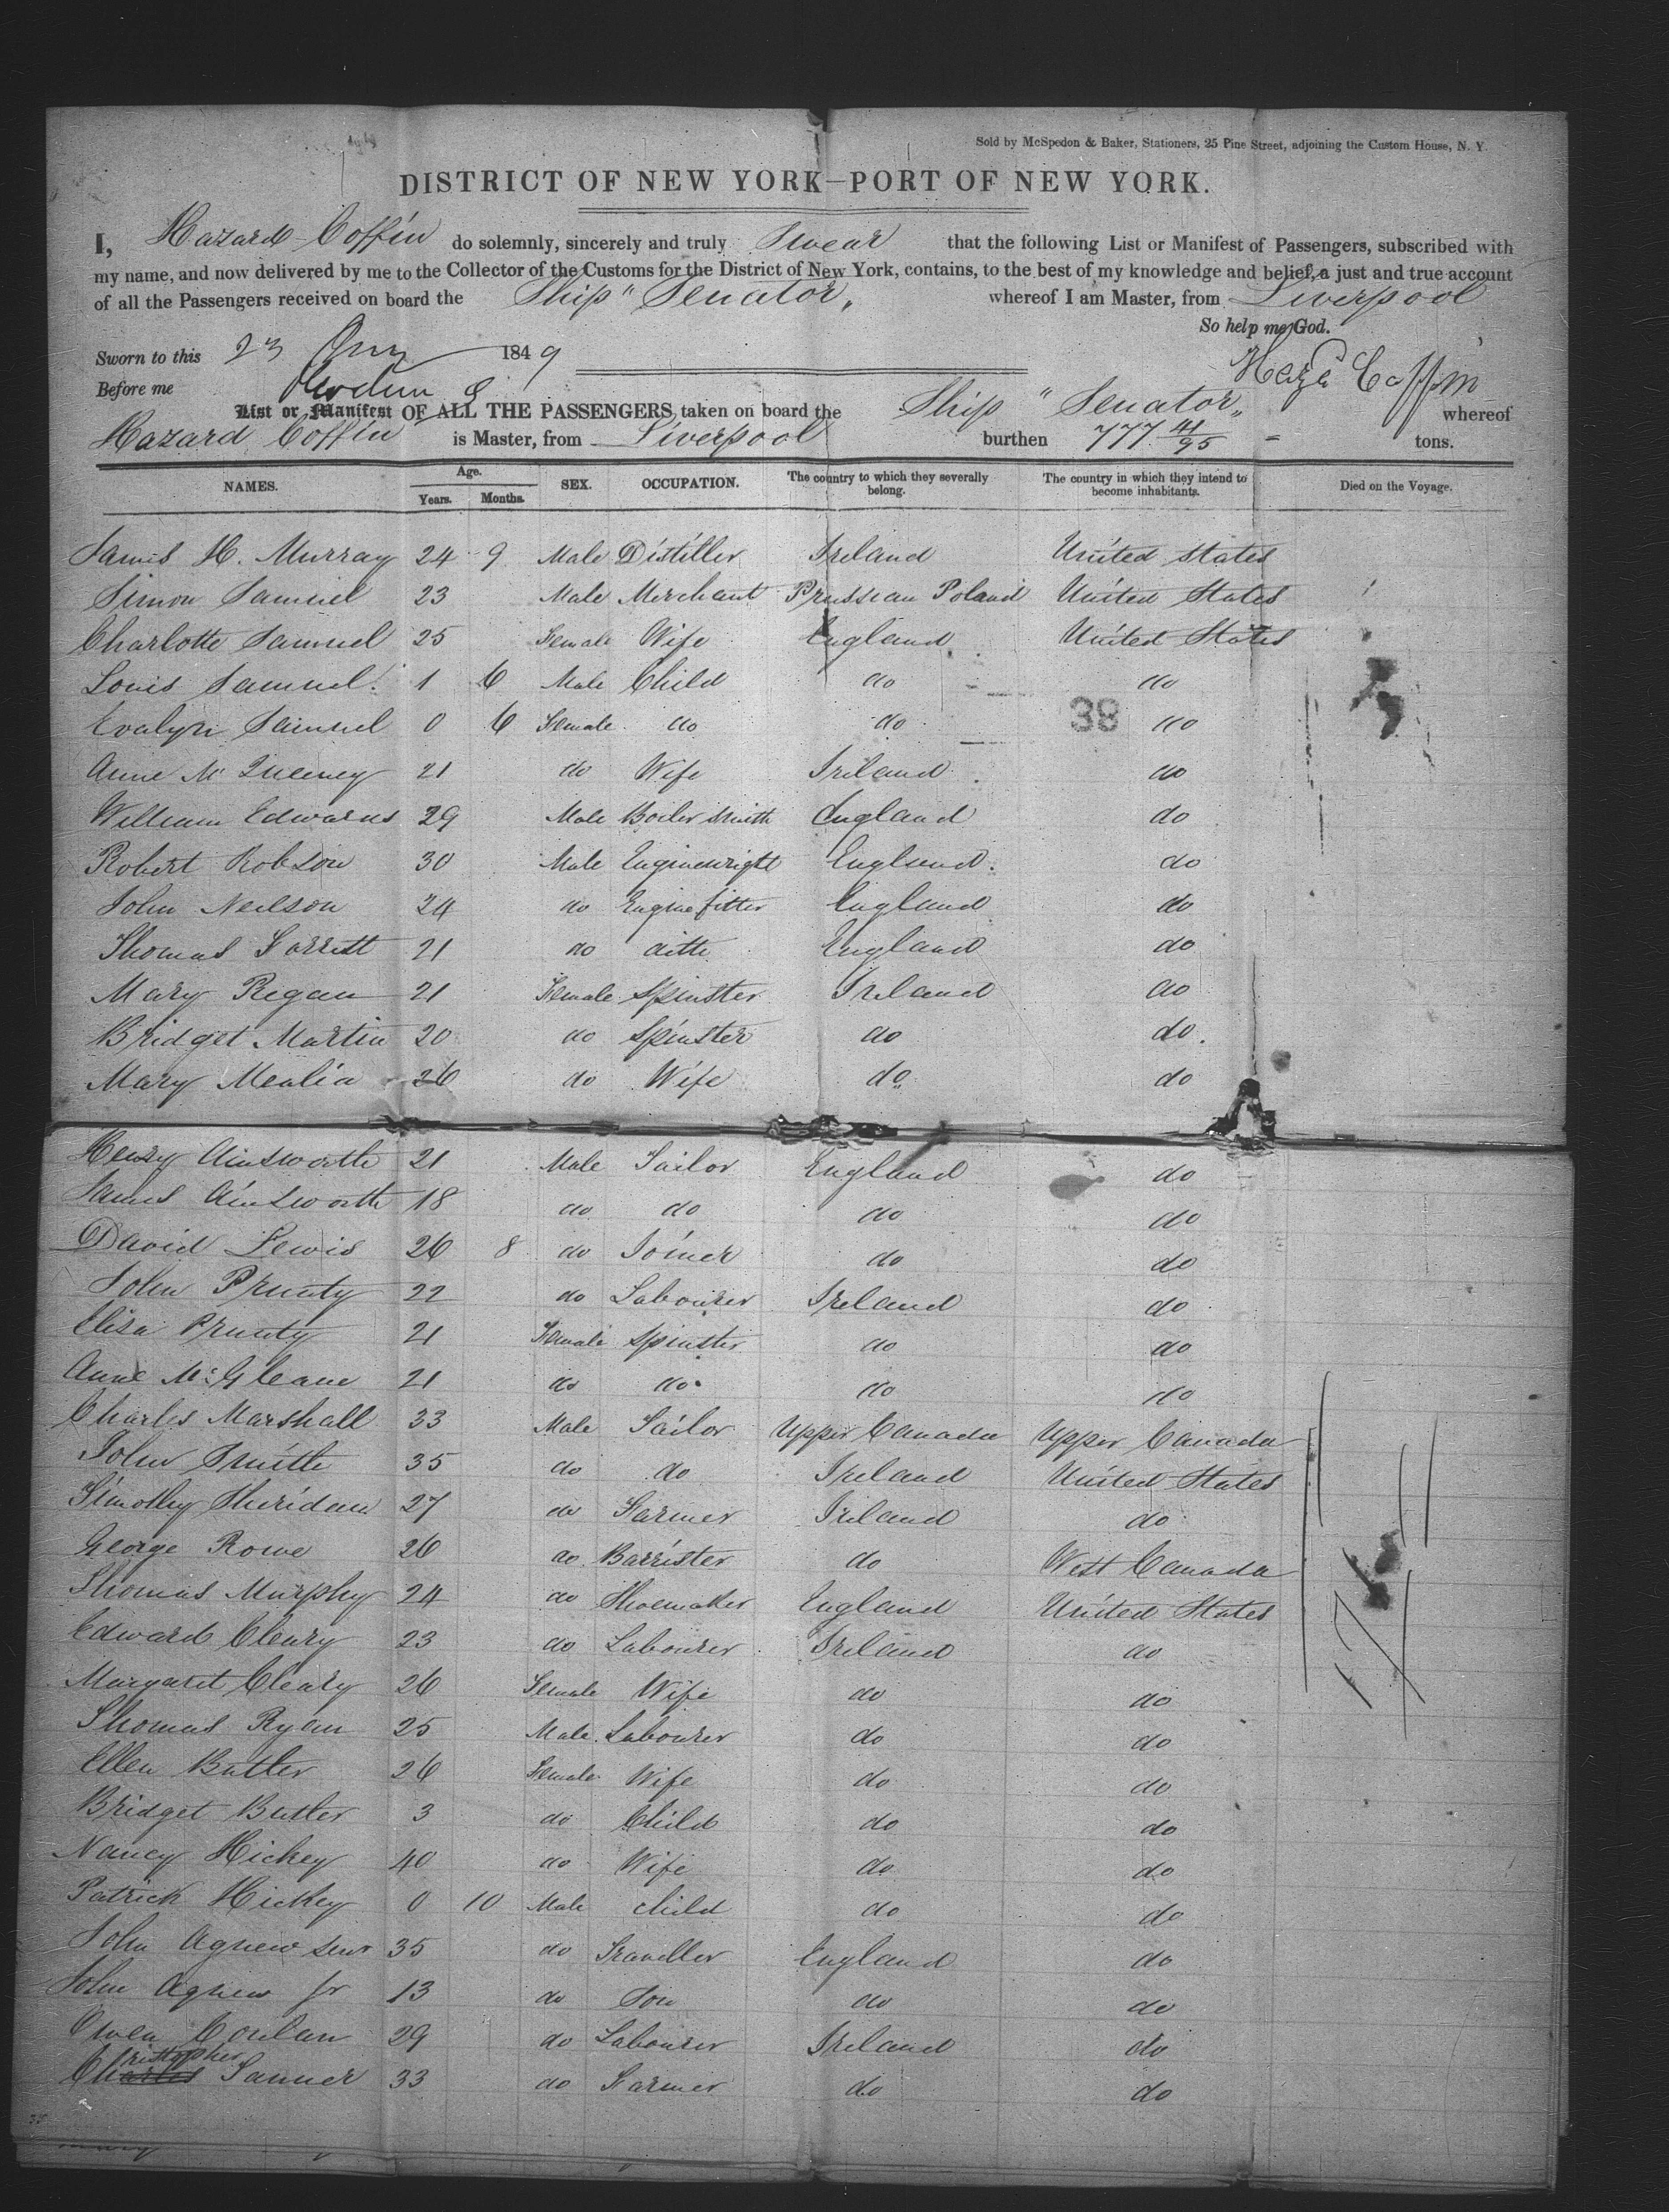 Sold by McSpedon & Baker, Stationers, 25 Pine Street, adjoining the Custom House, N. Y.
DISTRICT OF NEW YORK—PORT OF NEW YORK.
I, Hazard Coffin do solemnly, sincerely and truly Swear that the following List or Manifest of Passengers, subscribed with
my name, and now delivered by me to the Collector of the Customs for the District of New York, contains, to the best of my knowledge and belief, a just and true account
of all the Passengers received on board the Ship "Senator" whereof I am Master, from Liverpool
So help me God.
Sworn to this 23 1849
Before me
Hazd Coffin
List or Manifest OF ALL THE PASSENGERS taken on board the Ship "Senator" whereof
Hazard Coffin is Master, from Liverpool burthen 777 41/95 tons.
NAMES. Age. Years. Months. SEX. OCCUPATION. The country to which they severally belong. The country in which they intend to become inhabitants. Died on the Voyage.
James H. Murray 24 9 Male Distiller Ireland United States
Simon Samuel 23 Male Merchant Prussian Poland United States
Charlotte Samuel 25 Female Wife England United States
Louis Samuel 1 6 Male Child do do
Evalyn Samuel 0 6 Female do do 38 do
Anne Mc Queeney 21 do Wife Ireland do
William Edwards 29 Male Boiler Smith England do
Robert Robson 30 Male Enginewright England do
John Neilson 24 do Engine fitter England do
Thomas 21 do ditto England do
Mary Regan 21 Female Spinster Ireland do
Bridget Martin 20 do Spinster do do
Mary Mealia 26 do Wife do do
Henry Ainsworth 21 Male Tailor England do
James Ainsworth 18 do do do do
David Lewis 26 8 do Joiner do do
John Prunty 22 do Labourer Ireland do
Elisa Prunty 21 Female Spinster do do
Anne McGleane 21 do do do do
Charles Marshall 33 Male Tailor Upper Canada Upper Canada
John Smith 35 do do Ireland United States
Timothy Sheridan 27 do Farmer Ireland do
George Rowe 26 do Barrister do West Canada
Thomas Murphy 24 do Shoemaker England United States
Edward Cleary 23 do Labourer Ireland do
Margaret Cleary 26 Female Wife do do
Thomas Ryan 25 Male Labourer do do
Ellen Butler 26 Female Wife do do
Bridget Butler 3 do Child do do
Nancy Hickey 40 do Wife do do
Patrick Hickey 0 10 Male child do do
John Agnew Senr 35 do Traveller England do
John Agnew Jr 13 do Son do do
Owen Conlan 29 do Labourer Ireland do
Christopher Tanner 33 do Farmer do do